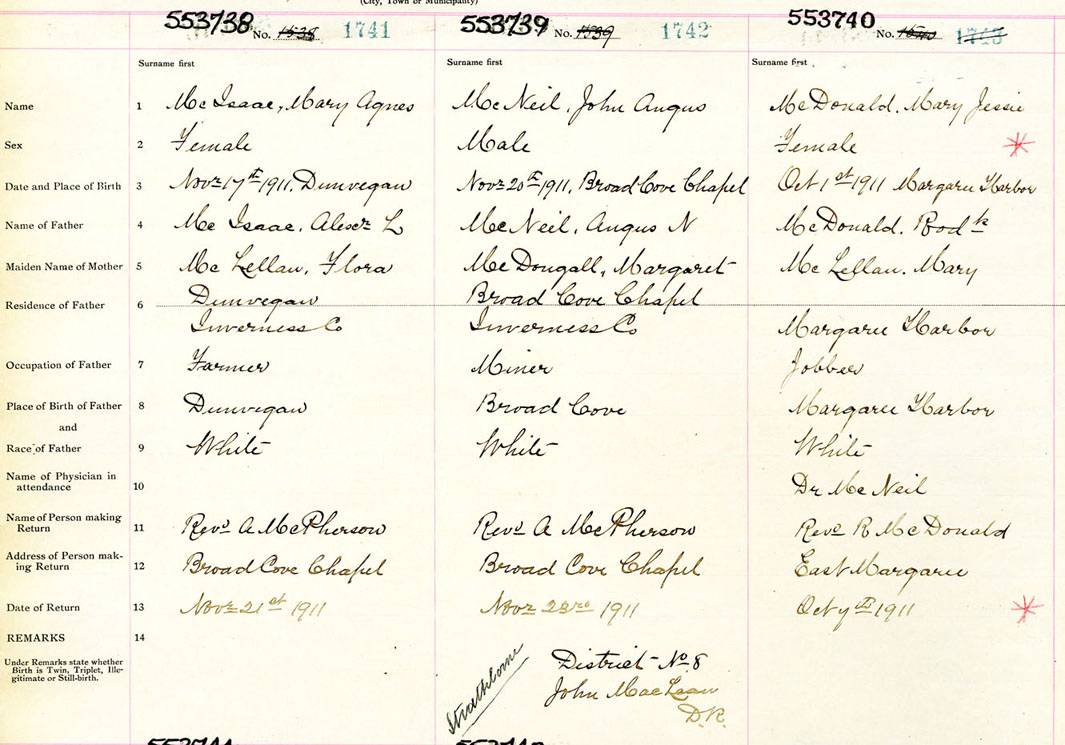 (City, Town or Municipality)
553738 No. 1538 1741 553739 No. 1539 1742 553740 No. 1540 1743
Surname first Surname first Surname first
Name 1 Mc Isaac, Mary Agnes McNeil, John Angus McDonald. Mary Jessie
Sex 2 Female Male Female
Date and Place of Birth 3 Novr 17th 1911, Dunvegan Novr 20th 1911, Broad Cove Chapel Oct 1st 1911 Margaree Harbor
Name of Father 4 Mc Isaac, Alexr L McNeil, Angus N McDonald, Rodk
Maiden Name of Mother 5 Mc Lellan, Flora McDougall, Margaret Mc Lellan. Mary
Residence of Father 6 Dunvegan Broad Cove Chapel
Inverness Co Inverness Co Margaree Harbor
Occupation of Father 7 Farmer Miner Jobber
Place of Birth of Father 8 Dunvegan Broad Cove Margaree Harbor
and
Race of Father 9 White White White
Name of Physician in
attendance 10 Dr McNeil
Name of Person making
Return 11 Revd A McPherson Revd A McPherson Revd R McDonald
Address of Person mak-
ing Return 12 Broad Cove Chapel Broad Cove Chapel East Margaree
Date of Return 13 Novr 21st 1911 Novr 23rd 1911 Oct 7th 1911
REMARKS 14
Under Remarks state whether
Birth is Twin, Triplet, Ille-
gitimate or Still-birth.
Strathlorne
District No. 8
John MacLean
D.R.